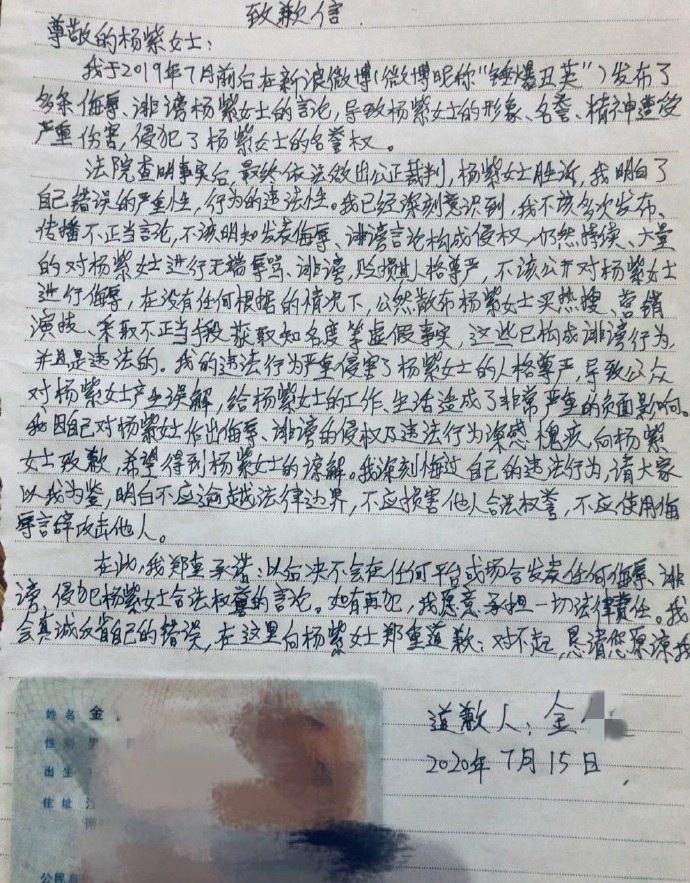 致歉信
尊敬的杨紫女士：
我于2019年7月前后在新浪微博（微博昵称“锤爆丑英”）发布了
多条侮辱、诽谤杨紫女士的言论，导致杨紫女士的形象、名誉、精神遭受
严重伤害，侵犯了杨紫女士的名誉权。
法院查明事实后，最终依法做出公正裁判，杨紫女士胜诉，我明白了
自己错误的严重性，行为的违法性。我已经深刻意识到，我不该多次发布、
传播不正当言论，不该明知发表侮辱、诽谤言论构成侵权，仍然持续、大量
的对杨紫女士进行无端辱骂、诽谤，贬损其人格尊严，不该公开对杨紫女士
进行侮辱，在没有任何根据的情况下，公然散布杨紫女士买热搜、营销
演技、采取不正当手段获取知名度等虚假事实，这些已构成诽谤行为，
并且是违法的。我的违法行为严重侵害了杨紫女士的人格尊严，导致公众
对杨紫女士产生误解，给杨紫女士的工作、生活造成了非常严重的负面影响。
我因自己对杨紫女士作出侮辱、诽谤的侵权及违法行为深感愧疚，向杨紫
女士致歉，希望得到杨紫女士的谅解。我深刻悔过自己的违法行为，请大家
以我为鉴，明白不应逾越法律边界，不应损害他人合法权誉，不应使用侮
辱言辞攻击他人。
在此，我郑重承诺：以后决不会在任何平台或场合发表任何侮辱、诽
谤，侵犯杨紫女士合法权誉的言论。如有再犯，我愿意承担一切法律责任。我
会真诚反省自己的错误，在这里向杨紫女士郑重道歉：对不起，恳请您原谅我
道歉人：金
2020年7月15日
姓名 金
性别 男
出生
住址
公民